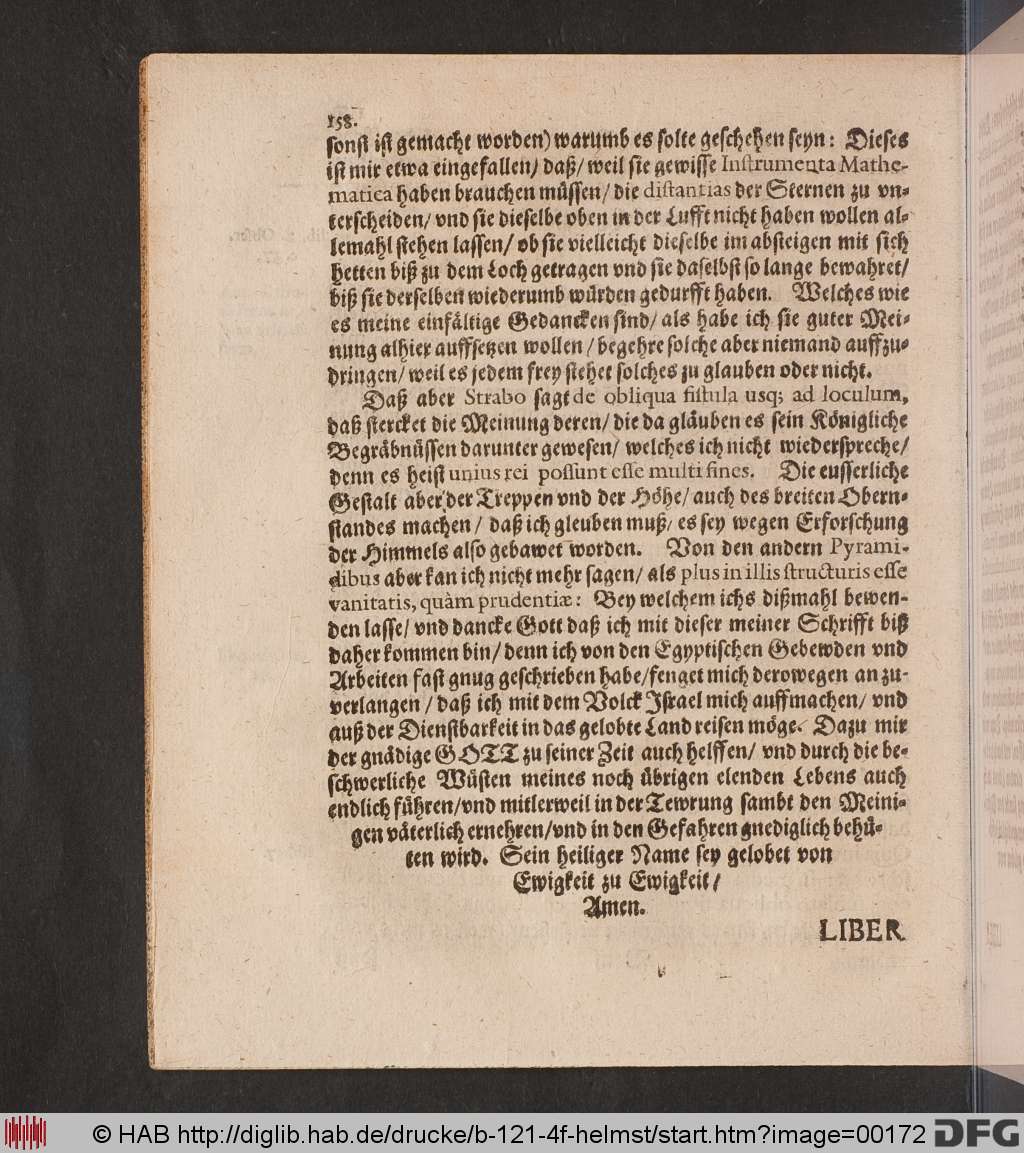 158.
sonst ist gemacht worden) warumb es solte geschehen seyn: Dieses
ist mir etwa eingefallen/ daß/ weil sie gewisse Instrumenta Mathe-
matica haben brauchen müssen/ die distantias der Sternen zu vn-
terscheiden/ vnd sie dieselbe oben in der Lufft nicht haben wollen al-
lemahl stehen lassen/ ob sie vielleicht dieselbe im absteigen mit sich
hetten biß zu dem Loch getragen vnd sie daselbst so lange bewahret/
biß sie derselben wiederumb würden gedurfft haben. Welches wie
es meine einfältige Gedancken sind/ als habe ich sie guter Mei-
nung alhier auffsetzen wollen / begehre solche aber niemand auffzu-
dringen/ weil es jedem frey stehet solches zu glauben oder nicht.
Daß aber Strabo sagt de obliqua fistula usq; ad loculum,
daß stercket die Meinung deren/ die da gläuben es sein Königliche
Begräbnüssen darunter gewesen/ welches ich nicht wiederspreche/
denn es heist unius rei possunt esse multi fines. Die eusserliche
Gestalt aber der Treppen vnd der Höhe/ auch des breiten Obern-
standes machen/ daß ich gleuben muß/ es sey wegen Erforschung
der Himmels also gebawet worden. Von den andern Pyrami-
dibus aber kan ich nicht mehr sagen/ als plus in illis structuris esse
vanitatis, quàm prudentiæ: Bey welchem ichs dißmahl bewen-
den lasse/ vnd dancke Gott daß ich mit dieser meiner Schrifft biß
daher kommen bin/ denn ich von den Egyptischen Gebewden vnd
Arbeiten fast gnug geschrieben habe/ fenget mich derowegen an zu-
verlangen / daß ich mit dem Volck Israel mich auffmachen/ vnd
auß der Dienstbarkeit in das gelobte Land reisen möge. Dazu mir
der gnädige GOTT zu seiner Zeit auch helffen/ vnd durch die be-
schwerliche Wüsten meines noch übrigen elenden Lebens auch
endlich führen/ vnd mitlerweil in der Tewrung sambt den Meini-
gen väterlich ernehren/ vnd in den Gefahren gnediglich behü-
ten wird. Sein heiliger Name sey gelobet von
Ewigkeit zu Ewigkeit/
Amen.
LIBER
© HAB http://diglib.hab.de/drucke/b-121-4f-helmst/start.htm?image=00172 DFG